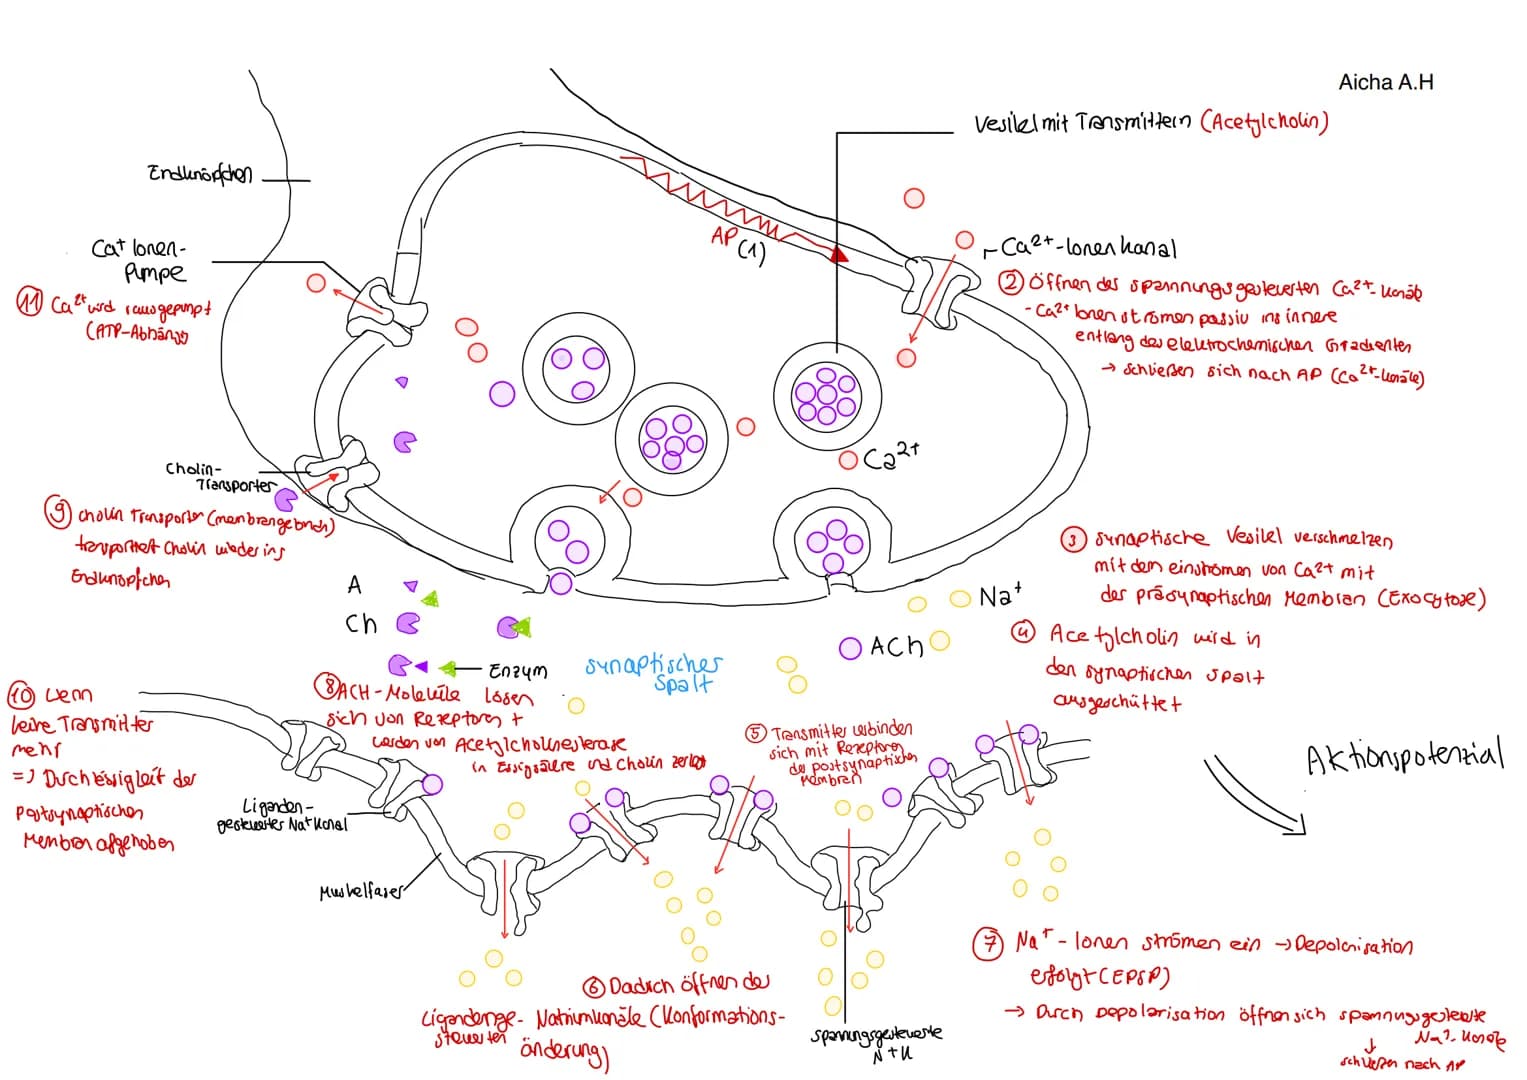 Aicha A.H
Vesikel mit Transmittern (Acetylcholin)
Endknöpfchen
AP (1)
Ca²⁺-Ionenkanal
② Öffnen des spannungsgesteuerten Ca²⁺-Kanäle
- Ca²⁺ Ionen strömen passiv ins innere
entlang des elektrochemischen Gradienten
→ schließen sich nach AP (Ca²⁺-Kanäle)
Ca⁺ Ionen-
Pumpe
⑪ Ca²⁺ wird rausgepumpt
(ATP-Abhängig
Ca²⁺
Cholin-
Transporter
⑨ Cholin Transporter (membrangebunden)
transportiert Cholin wieder ins
Endknöpfchen
③ synaptische Vesikel verschmelzen
mit dem einströmen von Ca²⁺ mit
der präsynaptischen Membran (Exocytose)
A
Ch
Enzym
Na⁺
ACh
④ Acetylcholin wird in
den synaptischen Spalt
ausgeschüttet
synaptischer
Spalt
⑧ ACH-Moleküle lösen
sich von Rezeptoren +
werden von Acetylcholinesterase
in Essigsäure und Cholin zerlegt
⑤ Transmitter verbinden
sich mit Rezeptoren
der postsynaptischen
Membran
⑩ wenn
keine Transmitter
mehr
=) Durchlässigkeit der
postsynaptischen
Membran afgehoben
Liganden-
gesteuerter Na⁺ Kanal
Muskelfaser
Aktionspotenzial
⑥ Dadurch öffnen der
Ligandenge- Natriumkanäle (Konformations-
steuerten änderung)
spannungsgesteuerte
N+K
⑦ Na⁺ - Ionen strömen ein → Depolarisation
erfolgt (EPSP)
→ Durch Depolarisation öffnen sich spannungsgesteuerte
Na⁺-Kanäle
↓
schließen nach AP